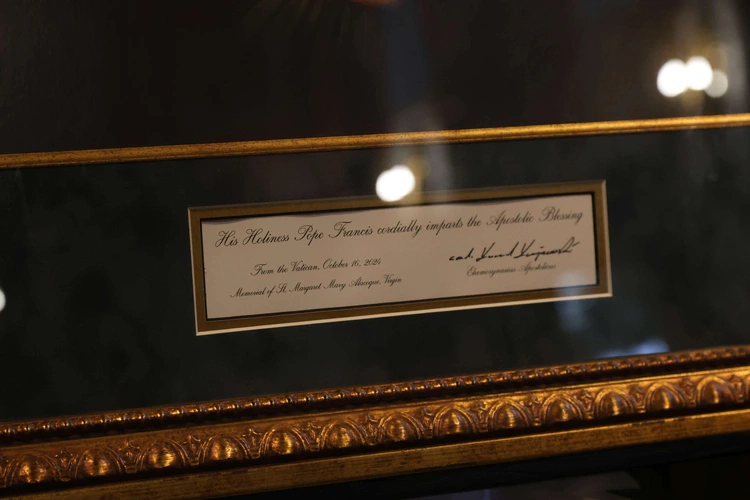 His Holiness Pope Francis cordially imparts the Apostolic Blessing
From the Vatican, October 16, 2024
Memorial of St. Margaret Mary Alacoque, Virgin
card.
Elemosynarius Apostolicus